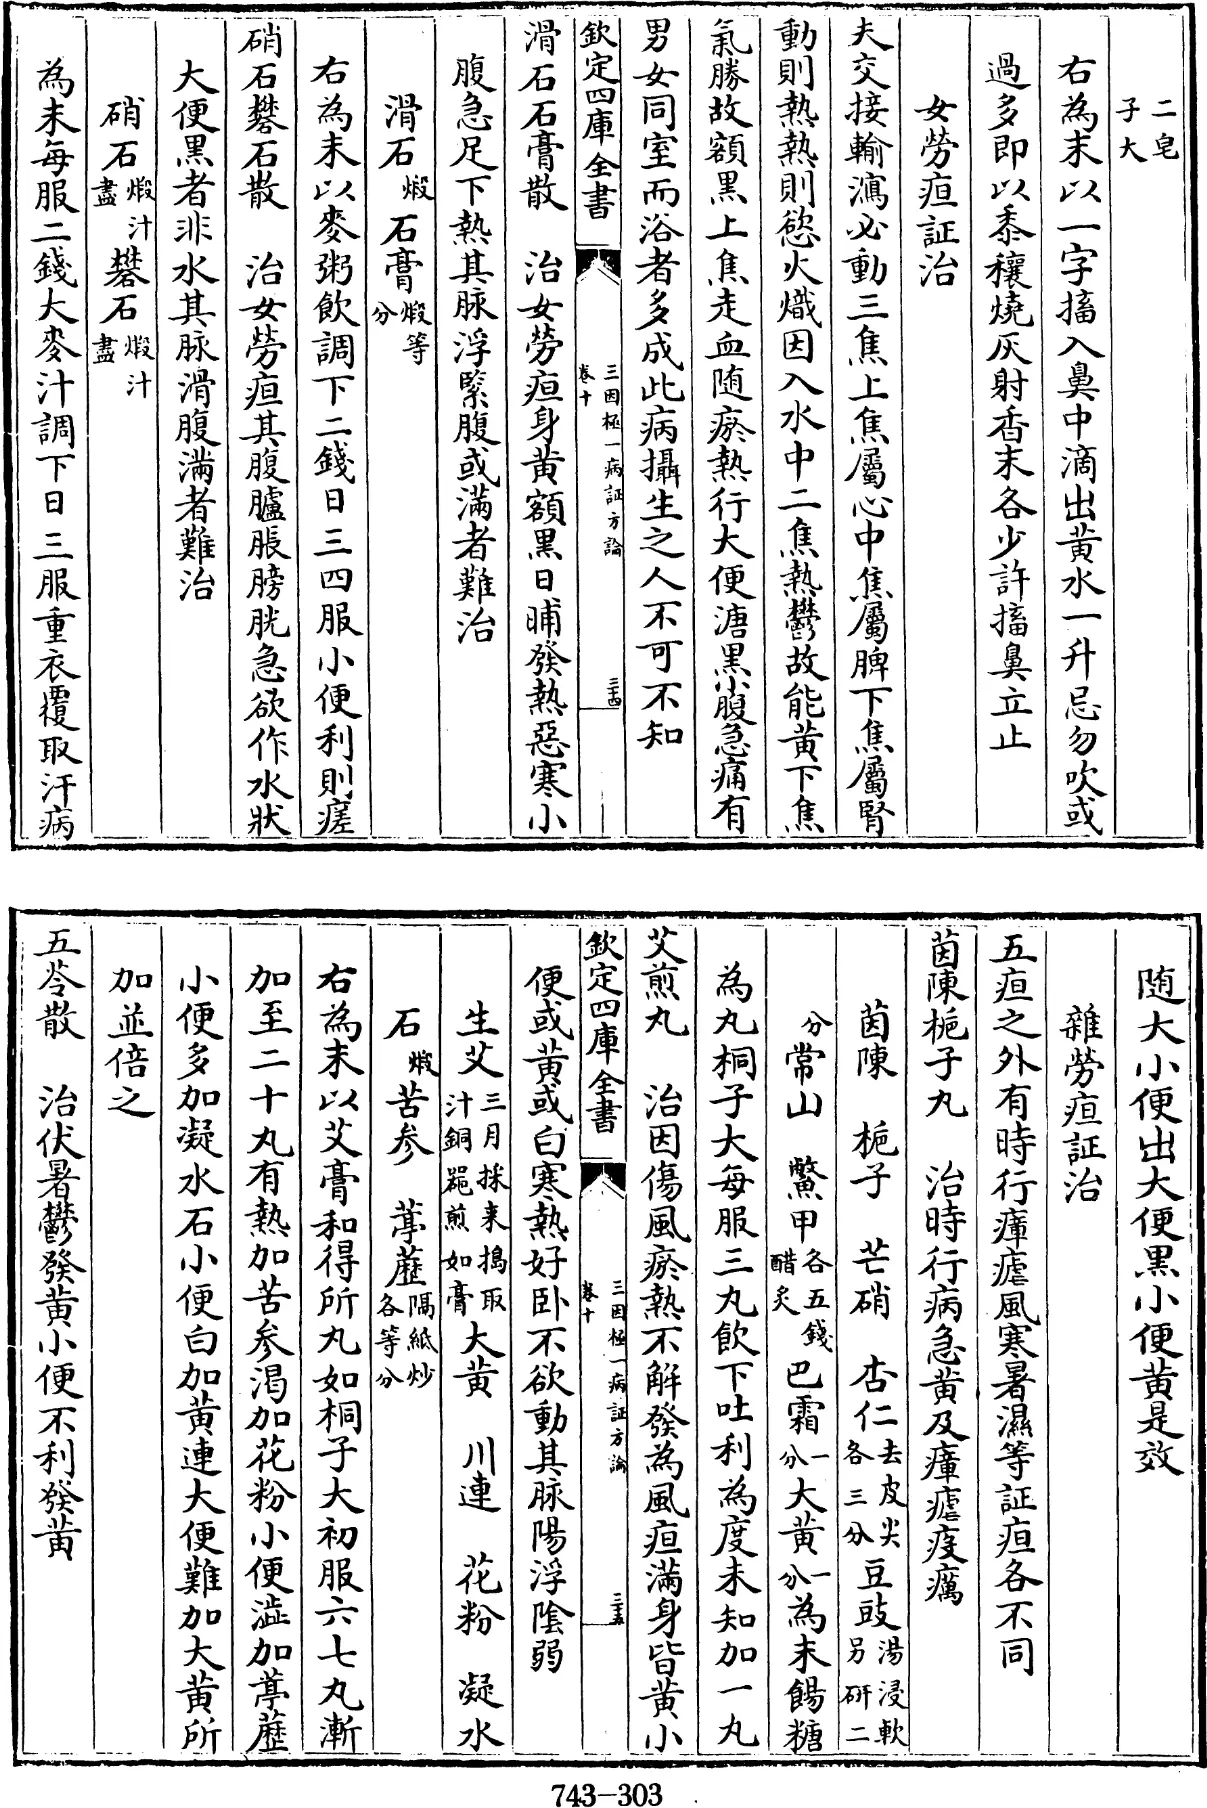 二皂
子大
右為末以一字搐入鼻中滴出黄水一升忌勿吹或
過多即以黍穰燒灰射香末各少許搐鼻立止
女勞疸証治
夫交接輸瀉必動三焦上焦屬心中焦屬脾下焦屬腎
動則熱熱則慾火熾因入水中二焦熱鬱故能黄下焦
氣勝故額黒上焦走血随瘀熱行大便溏黒小腹急痛有
男女同室而浴者多成此病攝生之人不可不知
欽定四庫全書
三因極一病証方論
卷十
三十四
滑石石膏散　治女勞疸身黄額黒日晡發熱惡寒小
腹急足下熱其脉浮緊腹或滿者難治
滑石煅石膏煅等分
右為末以麥粥飲調下二錢日三四服小便利則瘥
硝石礬石散　治女勞疸其腹臚脹膀胱急欲作水狀
大便黒者非水其脉滑腹滿者難治
硝石煅汁盡礬石煅汁盡
為末每服二錢大麥汁調下日三服重衣覆取汗病
随大小便出大便黒小便黄是效
雜勞疸証治
五疸之外有時行瘴瘧風寒暑濕等証疸各不同
茵陳梔子丸　治時行病急黄及瘴瘧疫癘
茵陳　梔子　芒硝　杏仁去皮尖各三分豆豉湯浸軟另研二
分常山　鱉甲各五錢醋炙巴霜一分大黄一分為末餳糖
為丸桐子大每服三丸飲下吐利為度未知加一丸
艾煎丸　治因傷風瘀熱不解發為風疸滿身皆黄小
欽定四庫全書
三因極一病証方論
卷十
三十五
便或黄或白寒熱好卧不欲動其脉陽浮陰弱
生艾三月採来搗取汁銅器煎如膏大黄　川連　花粉　凝水
石煅苦参　葶藶隔紙炒各等分
右為末以艾膏和得所丸如桐子大初服六七丸漸
加至二十丸有熱加苦参渴加花粉小便澁加葶藶
小便多加凝水石小便白加黄連大便難加大黄所
加並倍之
五苓散　治伏暑鬱發黄小便不利發黄
743-303